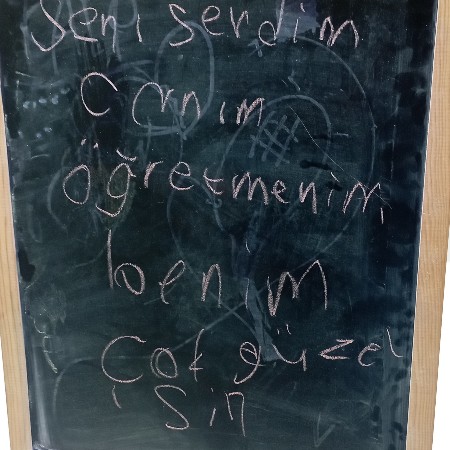 Seni serdim
canım
öğretmenim
benim
Çok güzel
sin